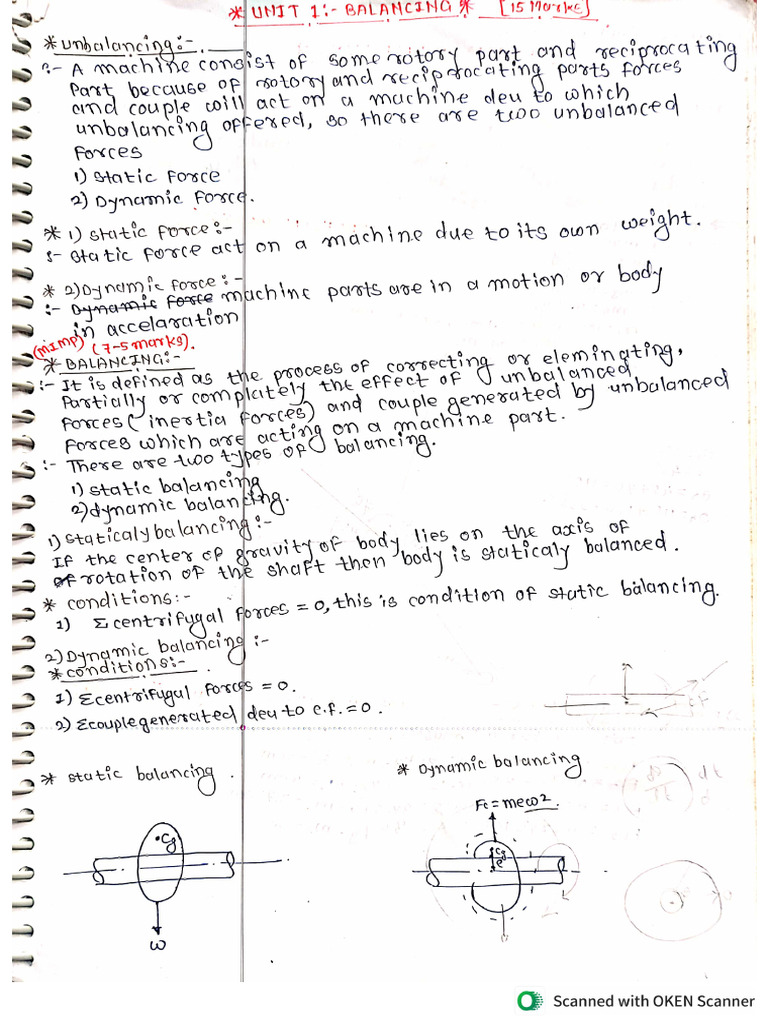 * UNIT 1:- BALANCING * [15 Marks]
* Unbalancing:-
:- A machine consist of some rotory part and reciprocating
Part because of rotory and reciprocating parts forces
and couple will act on a machine deu to which
unbalancing offered, so there are two unbalanced
Forces
1) Static Force
2) Dynamic Force.
* 1) Static Force:-
:- Static Force act on a machine due to its own weight.
* 2) Dynamic Force:-
:- Dynamic Force machine parts are in a motion or body
in accelaration
(MIMP) (7-5 marks).
* BALANCING:-
:- It is defined as the process of correcting or eleminating,
Partially or complately the effect of unbalanced
Forces (inertia Forces) and couple generated by unbalanced
Forces which are acting on a machine part.
:- There are two types of balancing.
1) static balancing
2) dynamic balancing.
1) staticaly balancing:-
If the center of gravity of body lies on the axis of
of rotation of the shaft then body is staticaly balanced.
* conditions:-
1) Σcentrifugal forces = 0, this is condition of static balancing.
2) Dynamic balancing:-
* conditions:-
1) Σcentrifugal forces = 0.
2) Σcouple generated deu to c.f. = 0.
CF
* static balancing.
* Dynamic balancing
Fc = meω2.
Cg
Cg
e
ω
Scanned with OKEN Scanner